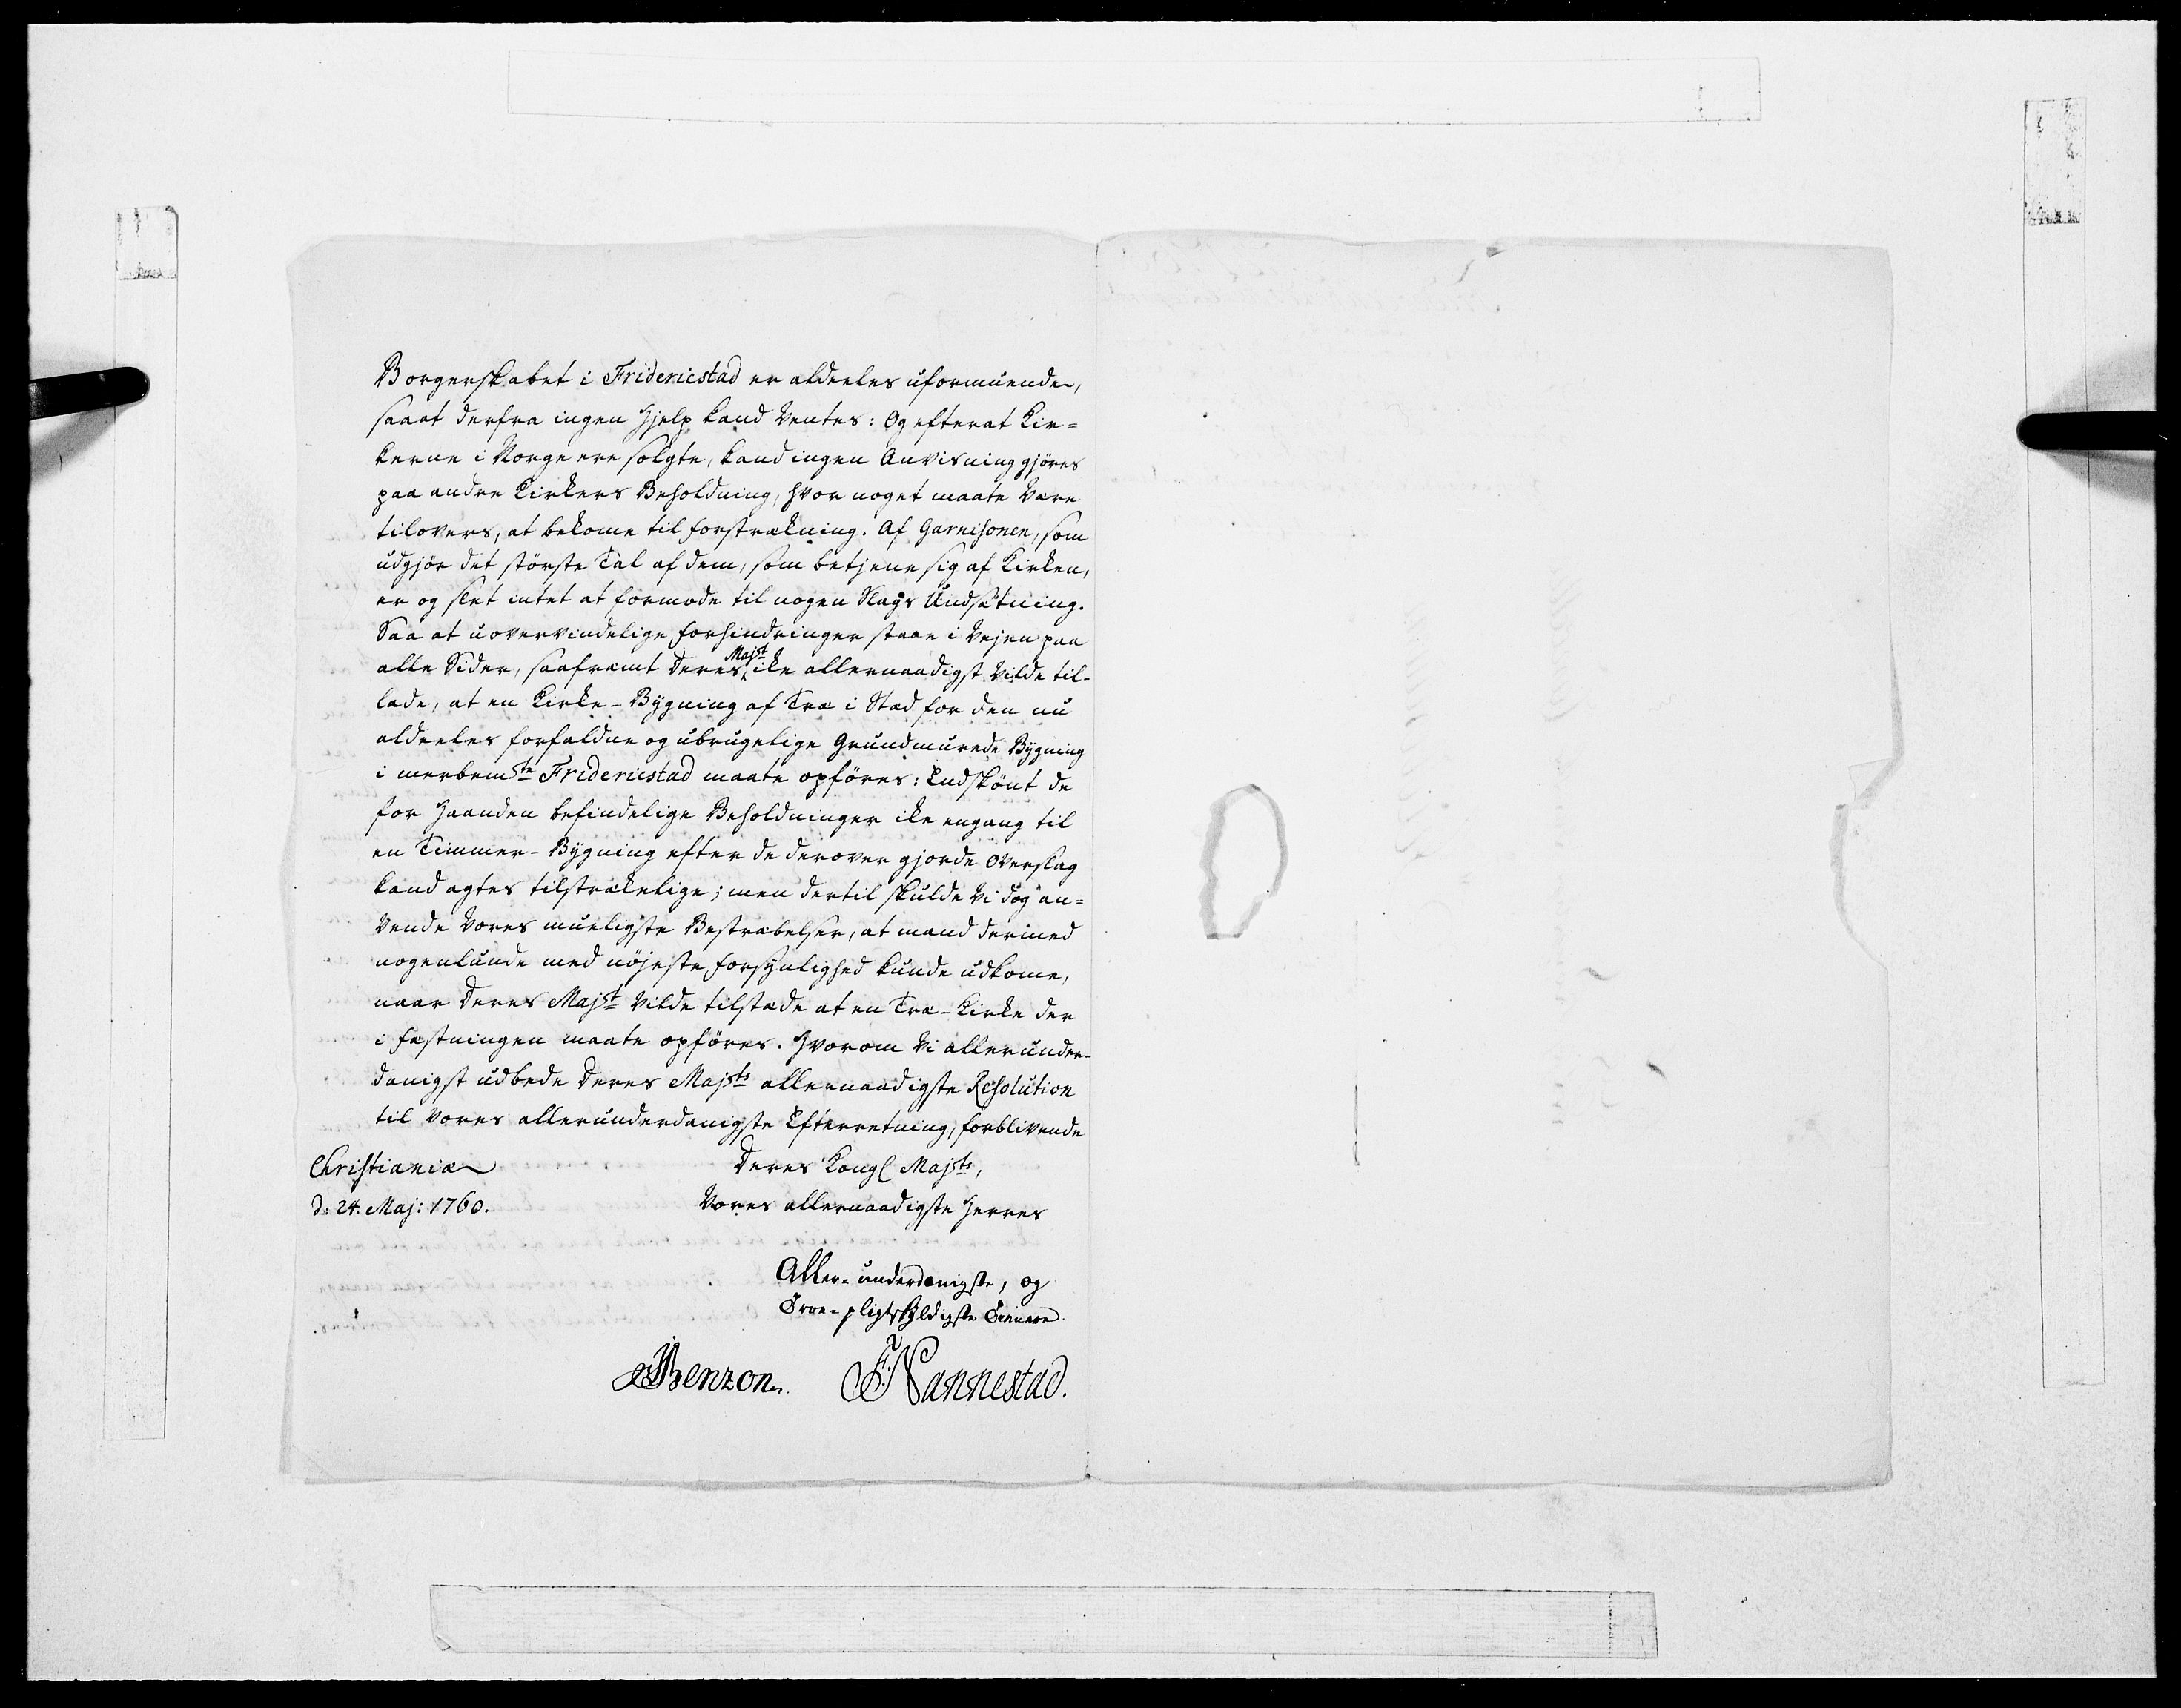 Borgerskabet i Fridericstad er aldeeles uformuende,
saaat derfra ingen Hjelp kand ventes: Og efterat Kir=
kerne i Norge ere solgte, kand ingen Anvisning gjöres
paa andre Kirkers Beholdning, hvor noget maate være
tilovers, at bekome til forstrækning. Af Garnisonen, som
udgjör det störste Tal af dem, som betjene sig af Kirken,
er og slet intet at formode til nogen Slags Undsætning.
Saa at uovervindelige forhindringer staae i Vejen paa
alle Sider, saafremt Deres Majst ike allernaadigst vilde til-
lade, at en Kirke-Bygning af Træ i Stæd for den nu
aldeeles forfaldne og ubrugelige Grundmurede Bygning
i merbemte Fridericstad maate opföres: Endskönt de
for Haanden befindelige Beholdninger ike engang til
en Timmer-Bygning efter de derover gjorde Overslag
kand agtes tilstrækelige; men dertil skulde Vi dog an=
vende Vores mueligste Bestræbelser, at mand dermed
nogenlunde med nöjeste forsynlighed kunde udkome,
naar Deres Majst vilde tilstæde at en Træ-Kirke der
i fæstningen maate opföres. Hvorom Vi allerunder-
danigst udbede Deres Majsts allernaadigste Resolution
til Vores allerunderdanigste Efterretning, forblivende
Christiania
d: 24. Maj: 1760.
Deres Kongl Majsts,
Vores allernaadigste Herres
Aller-underdanigste, og
Troe-pligtskyldigste Tienere
JBenzon.
F. Nannestad.